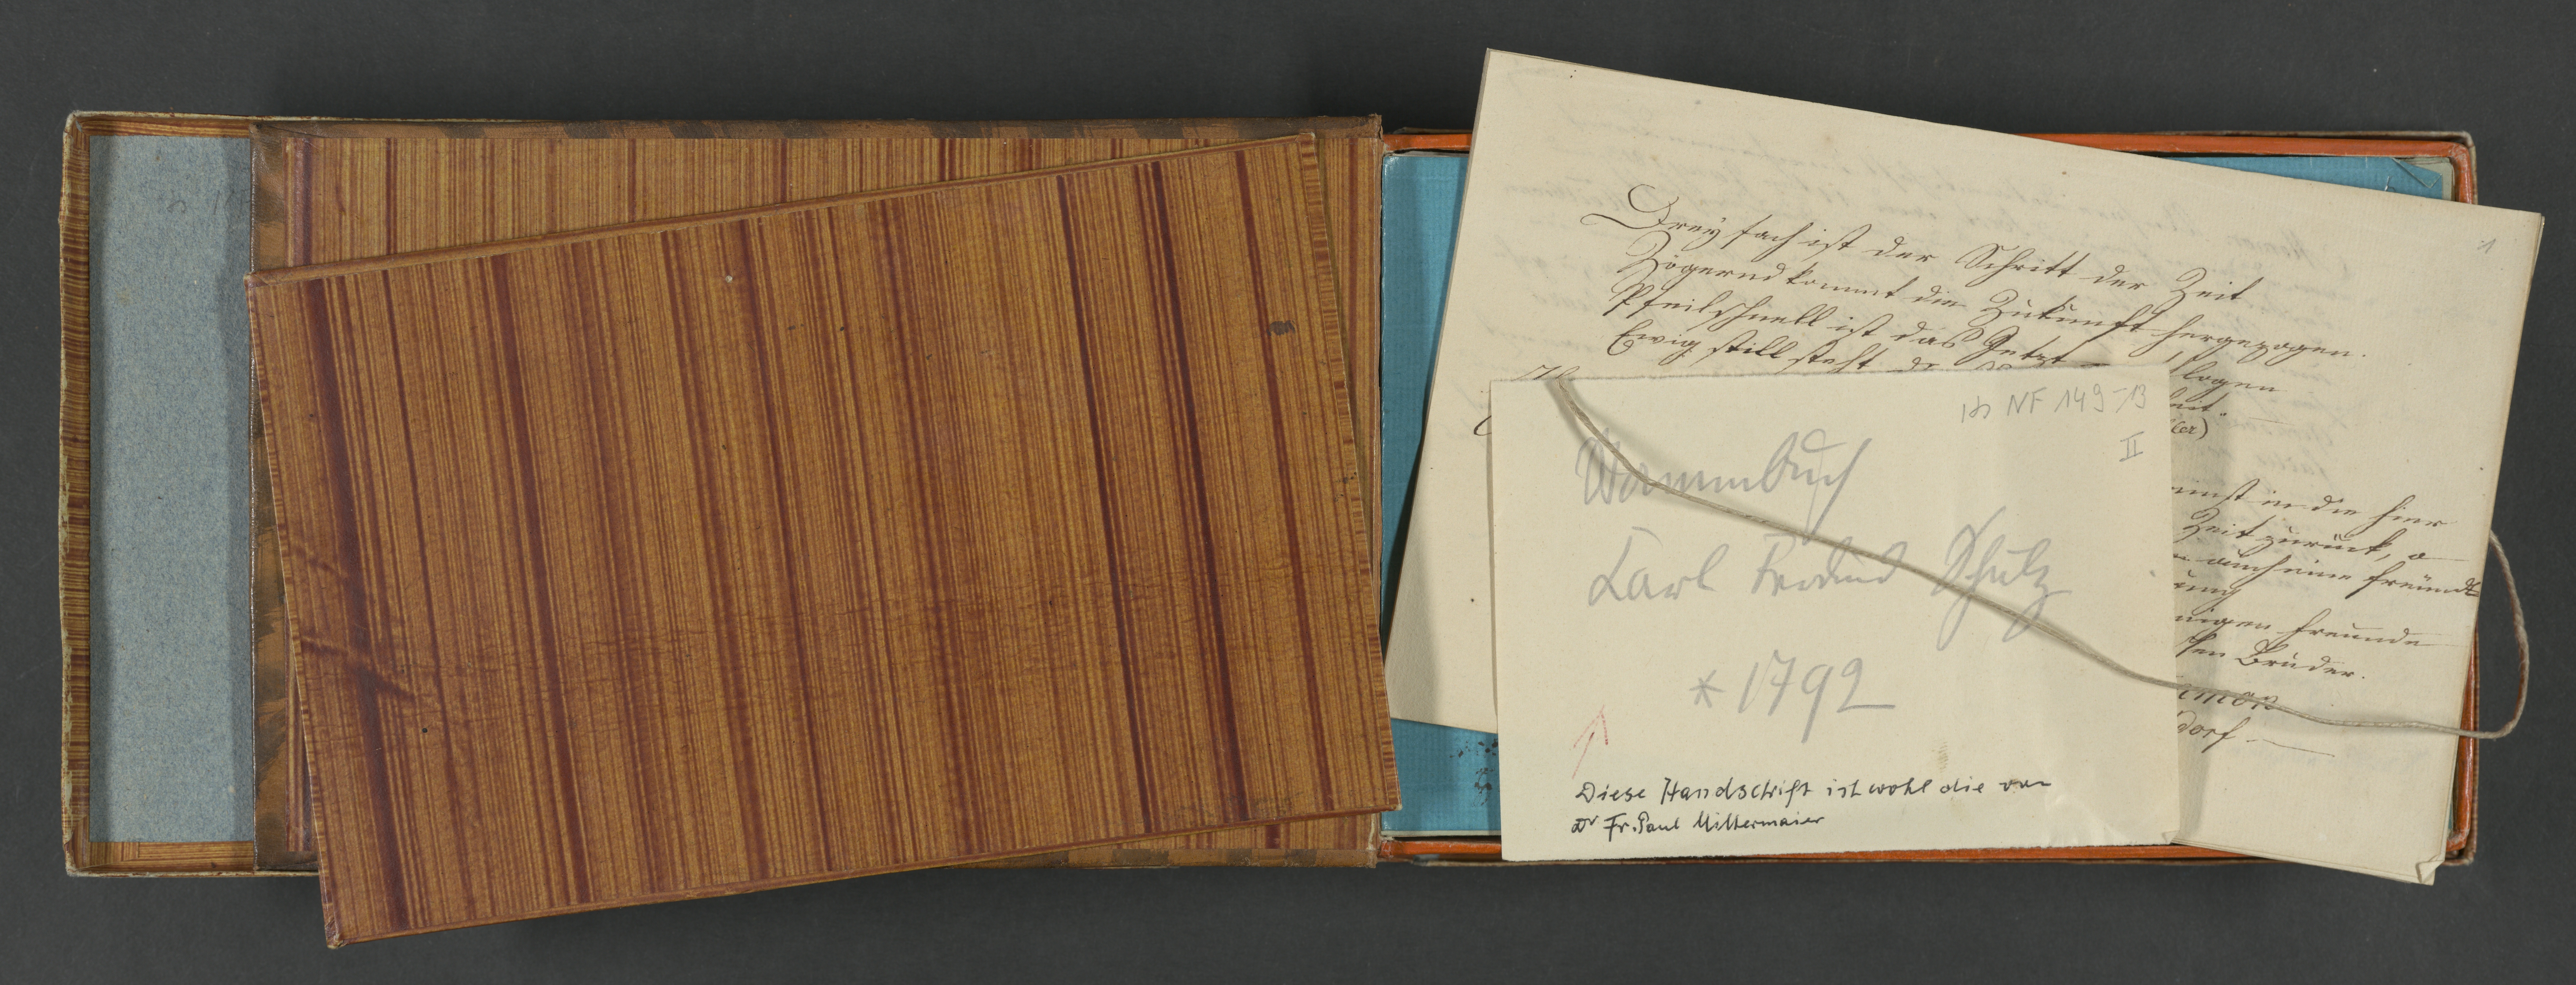 1
Dreyfach ist der Schritt der Zeit
Zögernd kommt die Zukunft hergezogen.
Pfeilschnell ist das Jetzt
Ewig still steht
Hs NF 149-13
II
Stammbuch
Karl Schulz
* 1792
Diese Handschrift ist wohl die von
Dr Fr. Paul Mittermaier
einst in die hier
Zeit zurück, o
auch eine freund
Freunde
Brüder.
dorf